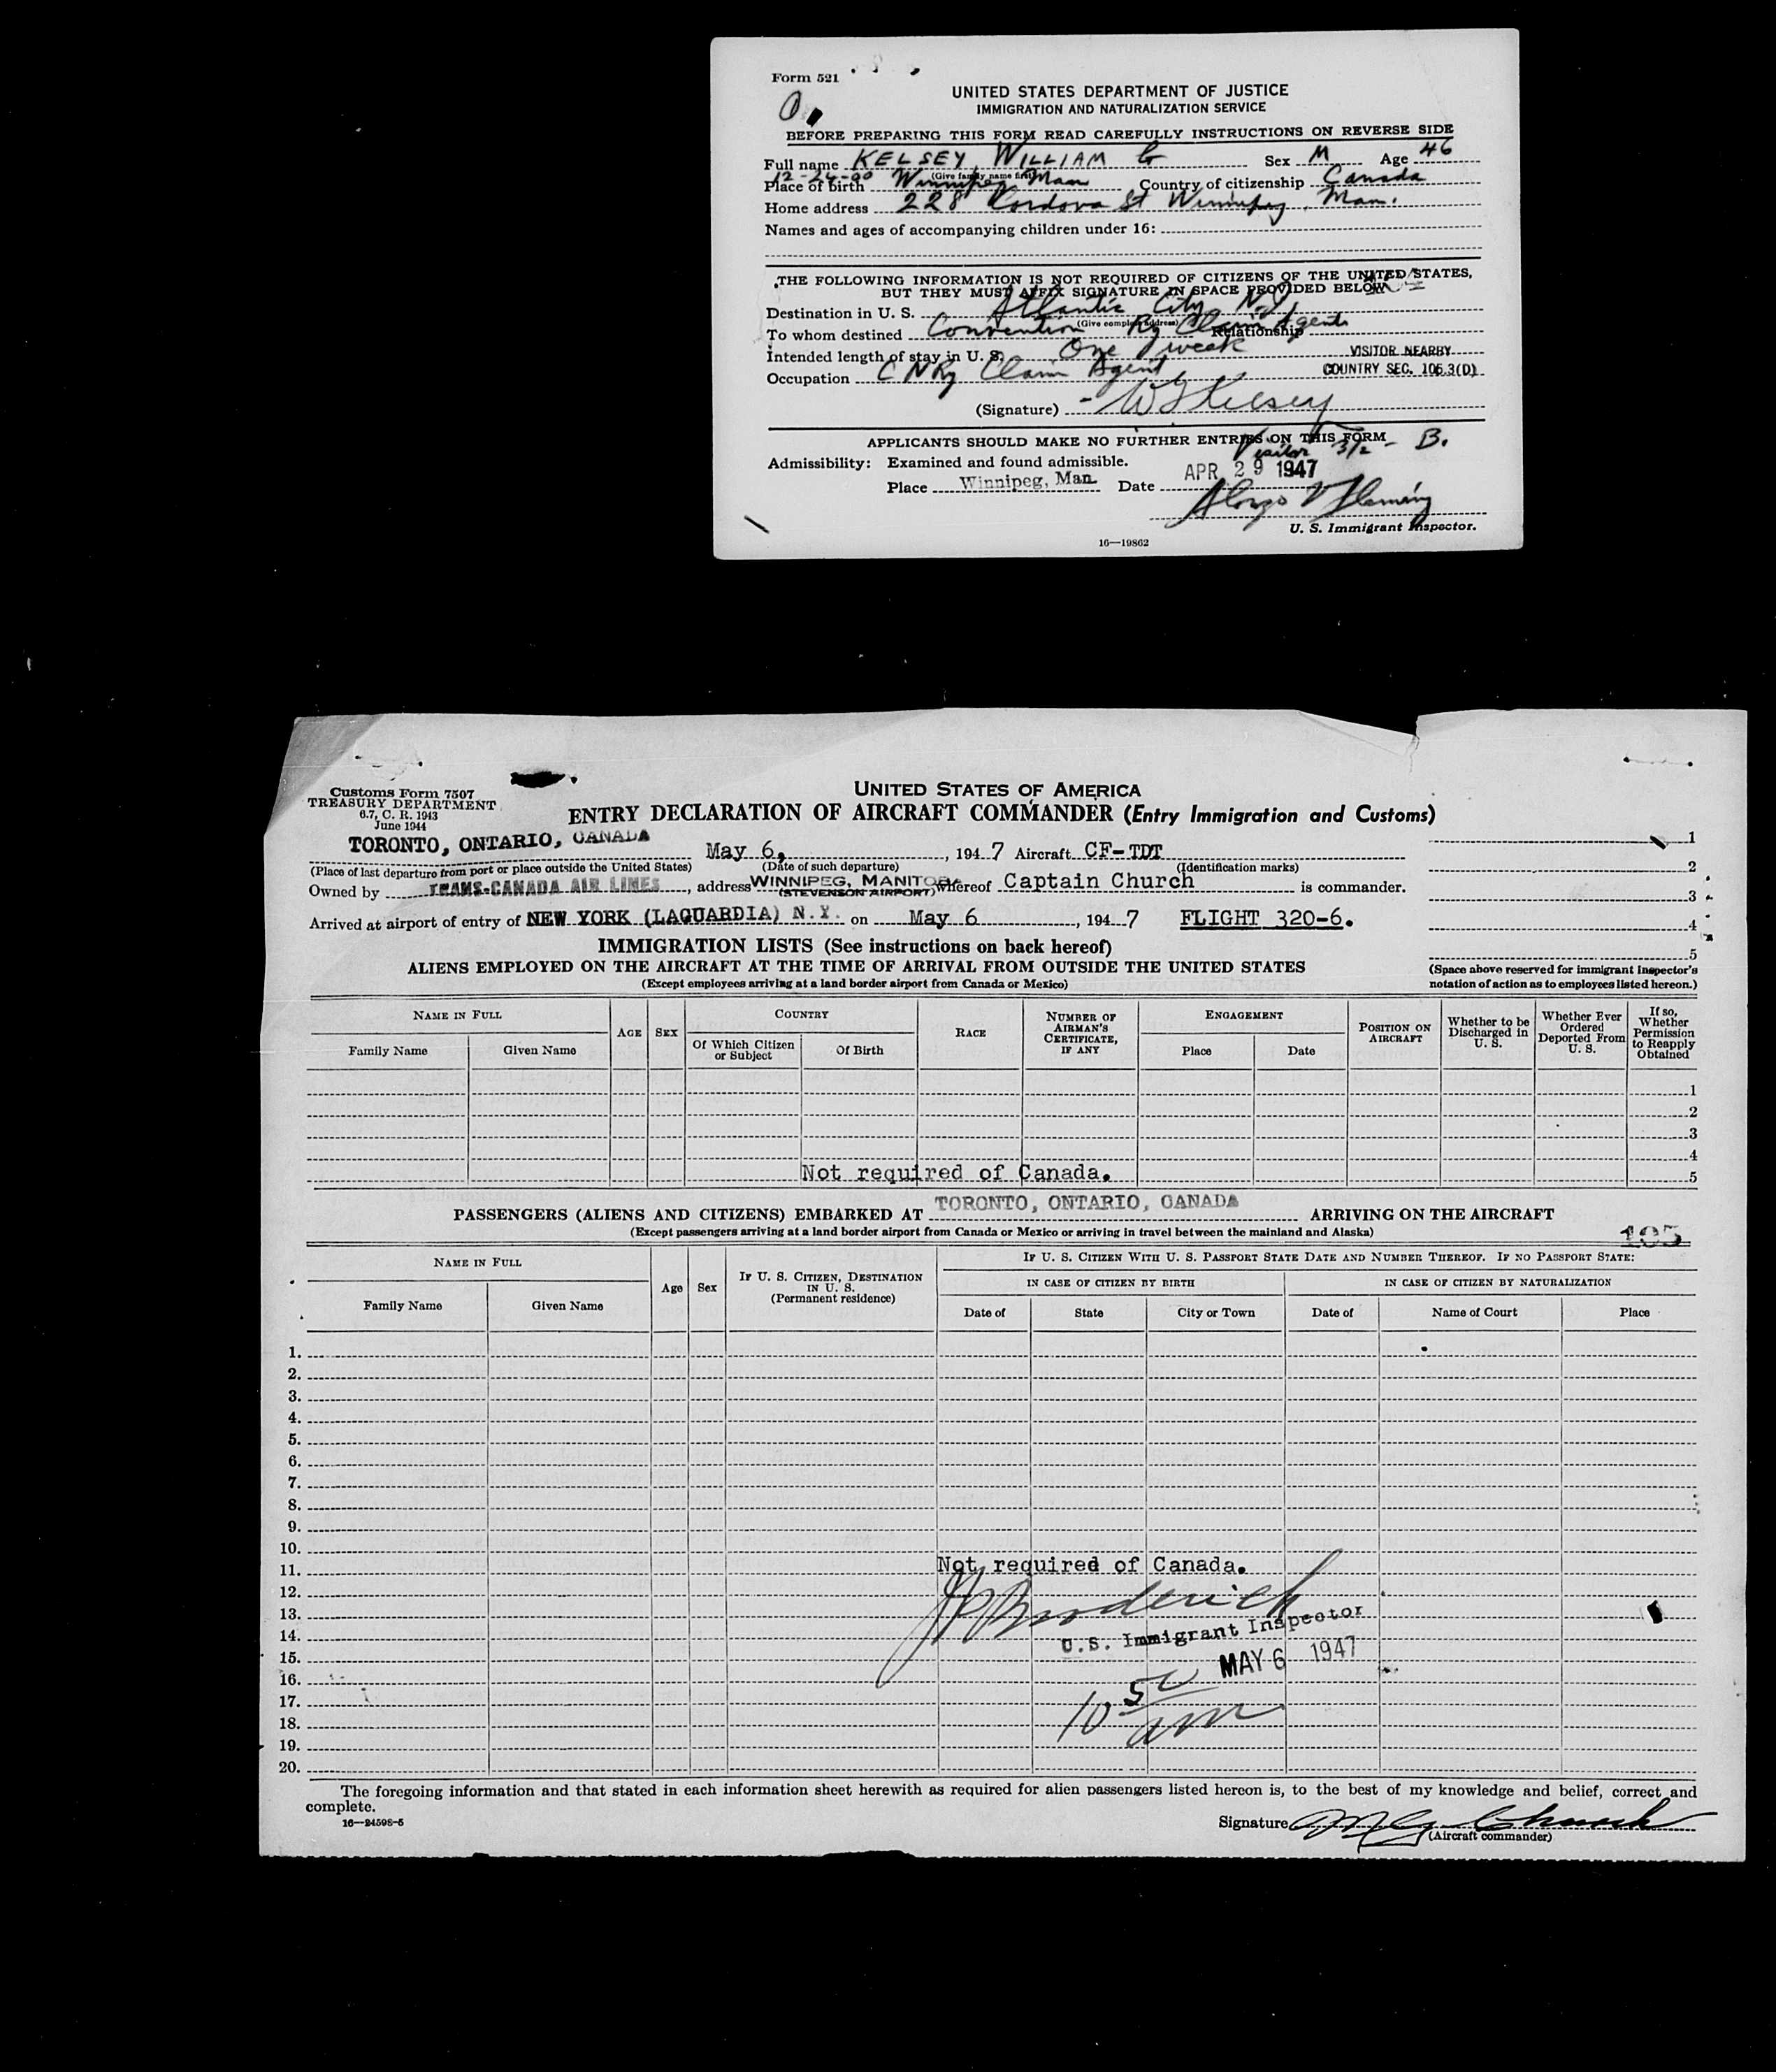 Form 521
UNITED STATES DEPARTMENT OF JUSTICE
IMMIGRATION AND NATURALIZATION SERVICE
BEFORE PREPARING THIS FORM READ CAREFULLY INSTRUCTIONS ON REVERSE SIDE
Full name KELSEY, WILLIAM G Sex M Age 46
(Give family name first)
12-24-00
Place of birth Winnipeg Man Country of citizenship Canada
Home address 228 Cordova St Winnipeg, Man.
Names and ages of accompanying children under 16:
THE FOLLOWING INFORMATION IS NOT REQUIRED OF CITIZENS OF THE UNITED STATES,
BUT THEY MUST AFFIX SIGNATURE IN SPACE PROVIDED BELOW
Destination in U. S. Atlantic City N.J.
(Give complete address)
To whom destined Convention Ry Claim Agents Relationship
Intended length of stay in U. S. One week VISITOR NEARBY
Occupation C N Ry Claim Agent COUNTRY SEC. 105.3(D)
(Signature) W G Kelsey
APPLICANTS SHOULD MAKE NO FURTHER ENTRIES ON THIS FORM
Visitor 3/2 - B.
Admissibility: Examined and found admissible.
Place Winnipeg, Man. Date APR 29 1947
Alonzo V Fleming
U. S. Immigrant Inspector.
16—19862
Customs Form 7507
TREASURY DEPARTMENT
6.7, C. R. 1943
June 1944
UNITED STATES OF AMERICA
ENTRY DECLARATION OF AIRCRAFT COMMANDER (Entry Immigration and Customs)
TORONTO, ONTARIO, CANADA May 6, , 1947 Aircraft CF-TDT
(Place of last departure from port or place outside the United States) (Date of such departure) (Identification marks)
Owned by TRANS-CANADA AIR LINES, address WINNIPEG, MANITOBA (STEVENSON AIRPORT) whereof Captain Church is commander.
Arrived at airport of entry of NEW YORK (LAGUARDIA) N.Y. on May 6, 1947 FLIGHT 320-6.
1
2
3
4
5
(Space above reserved for immigrant inspector's
notation of action as to employees listed hereon.)
IMMIGRATION LISTS (See instructions on back hereof)
ALIENS EMPLOYED ON THE AIRCRAFT AT THE TIME OF ARRIVAL FROM OUTSIDE THE UNITED STATES
(Except employees arriving at a land border airport from Canada or Mexico)
NAME IN FULL
Family Name Given Name
AGE SEX
COUNTRY
Of Which Citizen or Subject Of Birth
RACE
NUMBER OF AIRMAN'S CERTIFICATE, IF ANY
ENGAGEMENT
Place Date
POSITION ON AIRCRAFT
Whether to be Discharged in U. S.
Whether Ever Ordered Deported From U. S.
If so, Whether Permission to Reapply Obtained
1
2
3
4
5
Not required of Canada.
PASSENGERS (ALIENS AND CITIZENS) EMBARKED AT TORONTO, ONTARIO, CANADA ARRIVING ON THE AIRCRAFT
(Except passengers arriving at a land border airport from Canada or Mexico or arriving in travel between the mainland and Alaska)
105
NAME IN FULL
Family Name Given Name
Age Sex
IF U. S. CITIZEN, DESTINATION IN U. S.
(Permanent residence)
IF U. S. CITIZEN WITH U. S. PASSPORT STATE DATE AND NUMBER THEREOF. IF NO PASSPORT STATE:
IN CASE OF CITIZEN BY BIRTH IN CASE OF CITIZEN BY NATURALIZATION
Date of State City or Town Date of Name of Court Place
1.
2.
3.
4.
5.
6.
7.
8.
9.
10.
11. Not required of Canada.
12.
13. Broderick
14. U.S. Immigrant Inspector
15. MAY 6 1947
16.
17. 10 50 am
18.
19.
20.
The foregoing information and that stated in each information sheet herewith as required for alien passengers listed hereon is, to the best of my knowledge and belief, correct and
complete.
16—24598-5
Signature Church
(Aircraft commander)